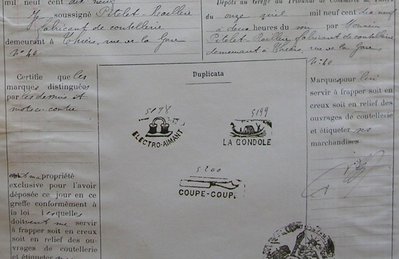 mil neuf cent dix neuf
soussigné Pitelet Baellier
fabricant de coutellerie
demeurant à Thiers, rue de la Gare
N° 40
Certifie que les
marques distinguées
par les dessins et
mots ci-contre
propriété
exclusive pour l'avoir
déposée ce jour en ce
greffe conformément à
la loi. Lesquelles
doivent me servir
à frapper soit en
creux soit en relief
des ouvrages de coutellerie
et étiqueter
Duplicata
5098
ÉLECTRO-AIMANT
5199
LA GONDOLE
5200
COUPE-COUP
Dépôts au Greffe du Tribunal de Commerce
du onze avril mil neuf cent dix neuf
à deux heures du soir par Monsieur
Pitelet fabricant de coutellerie
demeurant à Thiers, rue de la Gare
N° 40
Marques pour lui
servir à frapper soit en
creux soit en relief des
ouvrages de coutellerie
et étiqueter
marchandises.